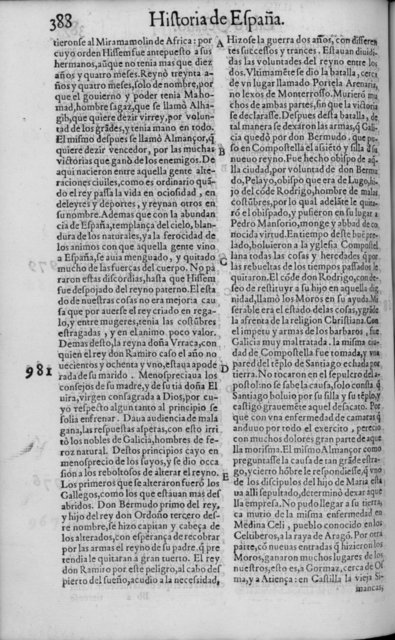 388
Historia de España.
tieronse al Miramamolin de Africa: por
cuyo orden Hissem fue antepuesto a sus
hermanos, aũque no tenia mas que diez
años y quatro meses. Reynò treynta a-
ños y quatro meses, solo de nombre, por
que el gouierno y poder tenia Maho-
mad, hombre sagaz, que se llamô Alha-
gib, que quiere dezir virrey, por volun-
tad de los grãdes, y tenia mano en todo.
El mismo despues se llamò Almançor, q̃
quiere dezir vencedor, por las muchas
victorias que ganò de los enemigos. De
aqui nacieron entre aquella gente alte-
raciones ciuiles, como es ordinario quã-
do el rey passa la vida en ociosidad, en
deleytes y deportes, y reynan otros en
su nombre. Ademas que con la abundan
cia de España, templança del cielo, blan-
dura de los naturales, ya la ferocidad de
los animos con que aquella gente vino
a España, se auia menguado, y quitado
mucho de las fuerças del cuerpo. No pa
raron estas discordias, hasta que Hissem
fue despojado del reyno paterno. El esta
do de nuestras cosas no era mejoria cau
sa que por auerse el rey criado en rega-
lo, y entre mugeres, tenia las costũbres
estragadas, y en el animo poco valor.
Demas desto, la reyna doña Vrraca, con
quien el rey don Ramiro caso el año no
981
uecientos y ochenta y vno, estaua apode
rada de su marido. Menospreciaua los
consejos de su madre, y de su tia doña El
uira, virgen consagrada a Dios, por cu-
yo respecto algun tanto al principio se
solia enfrenar. Daua audiencia de mala
gana, las respuestas asperas, con esto irri
tò los nobles de Galicia, hombres de fe-
roz natural. Destos principios cayo en
menosprecio de los suyos, y se dio occa
sion a los reboltosos de alterar el reyno.
Los primeros que se alteraron fuerõ los
Gallegos, como los que estauan mas des
abridos. Don Bermudo primo del rey,
y hijo del rey don Ordoño tercero des-
re nombre, se hizo capitan y cabeça de
los alterados, con esperança de recobrar
por las armas el reyno de su padre, q̃ pre
tendia le quitaran a gran tuerto. El rey
don Ramiro por este peligro, al cabo des
pierto del sueño, acudio a la necessidad,
A
B
C
D
E
Hizose la guerra dos años, con differen
tes successos y trances. Estauan diuidi-
das las voluntades del reyno entre los
dos. Vltimamẽte se dio la batalla, cerca
de vn lugar llamado Portela Arenaria,
no lexos de Monterrosso. Murierõ mu
chos de ambas partes, sin que la victoria
se declarasse. Despues desta batalla, de
tal manera se dexaron las armas, q̃ Gali
cia quedò por don Bermudo, que pu-
so en Compostella el assiẽto y silla d̃ su
nueuo reyno. Fue hecho obispo de aq̃
lla ciudad, por voluntad de don Bermu
do, Pelayo, obispo que era de Lugo, hi-
jo del cõde Rodrigo, hombre de malas
costũbres, por lo qual adelãte le quita-
rõ el obispado, y pusieron en su lugar a
Pedro Mansorio, monge y abbad de co-
nocida virtud. En tiempo deste buẽ pre-
lado, boluieron a la yglesia Compostel
lana todas las cosas y heredades q̃ por
las rebueltas de los tiempos passados le
quitaron. El cõde don Rodrigo, con de-
seo de restituyr a su hijo en aquella di-
gnidad, llamò los Moros en su ayuda. Mi
serable era el estado de las cosas, y grãde
la afrenta de la religion Christiana. Con
el impetu y armas de los barbaros, fue
Galicia muy maltratada. la misma ciu-
dad de Compostella fue tomada, y vna
pared del tẽplo de Santiago echada por
tierra. No tocaron en el sepulcro del a-
postol: no se sabe la causa, solo consta q̃
Santiago boluio por su silla y su tẽplo, y
castigo grauemẽte aquel desacato. Por
que con vna enfermedad de camaras q̃
anduuo por todo el exercito, perecio
con muchos dolores gran parte de aque
lla morisma. El mismo Almançor como
preguntasse la causa de tan grãde estra-
go, y cierto hõbre le respondiesse, q̃ vno
de los discipulos del hijo de Maria esta
ua alli sepultado, determinò dexar aque
lla empresa. No pudo llegar a su tierra,
ca murio de la misma enfermedad en
Medina Celi, pueblo conocido en los
Celtiberos, a la raya de Aragõ. Por otra
parte, cõ nueuas entradas q̃ hizieron los
Moros, ganaron muchos lugares de los
nuestros, esto es, a Gormaz, cerca de Os
ma, y a Atiença: en Castilla la vieja Si-
mancas,